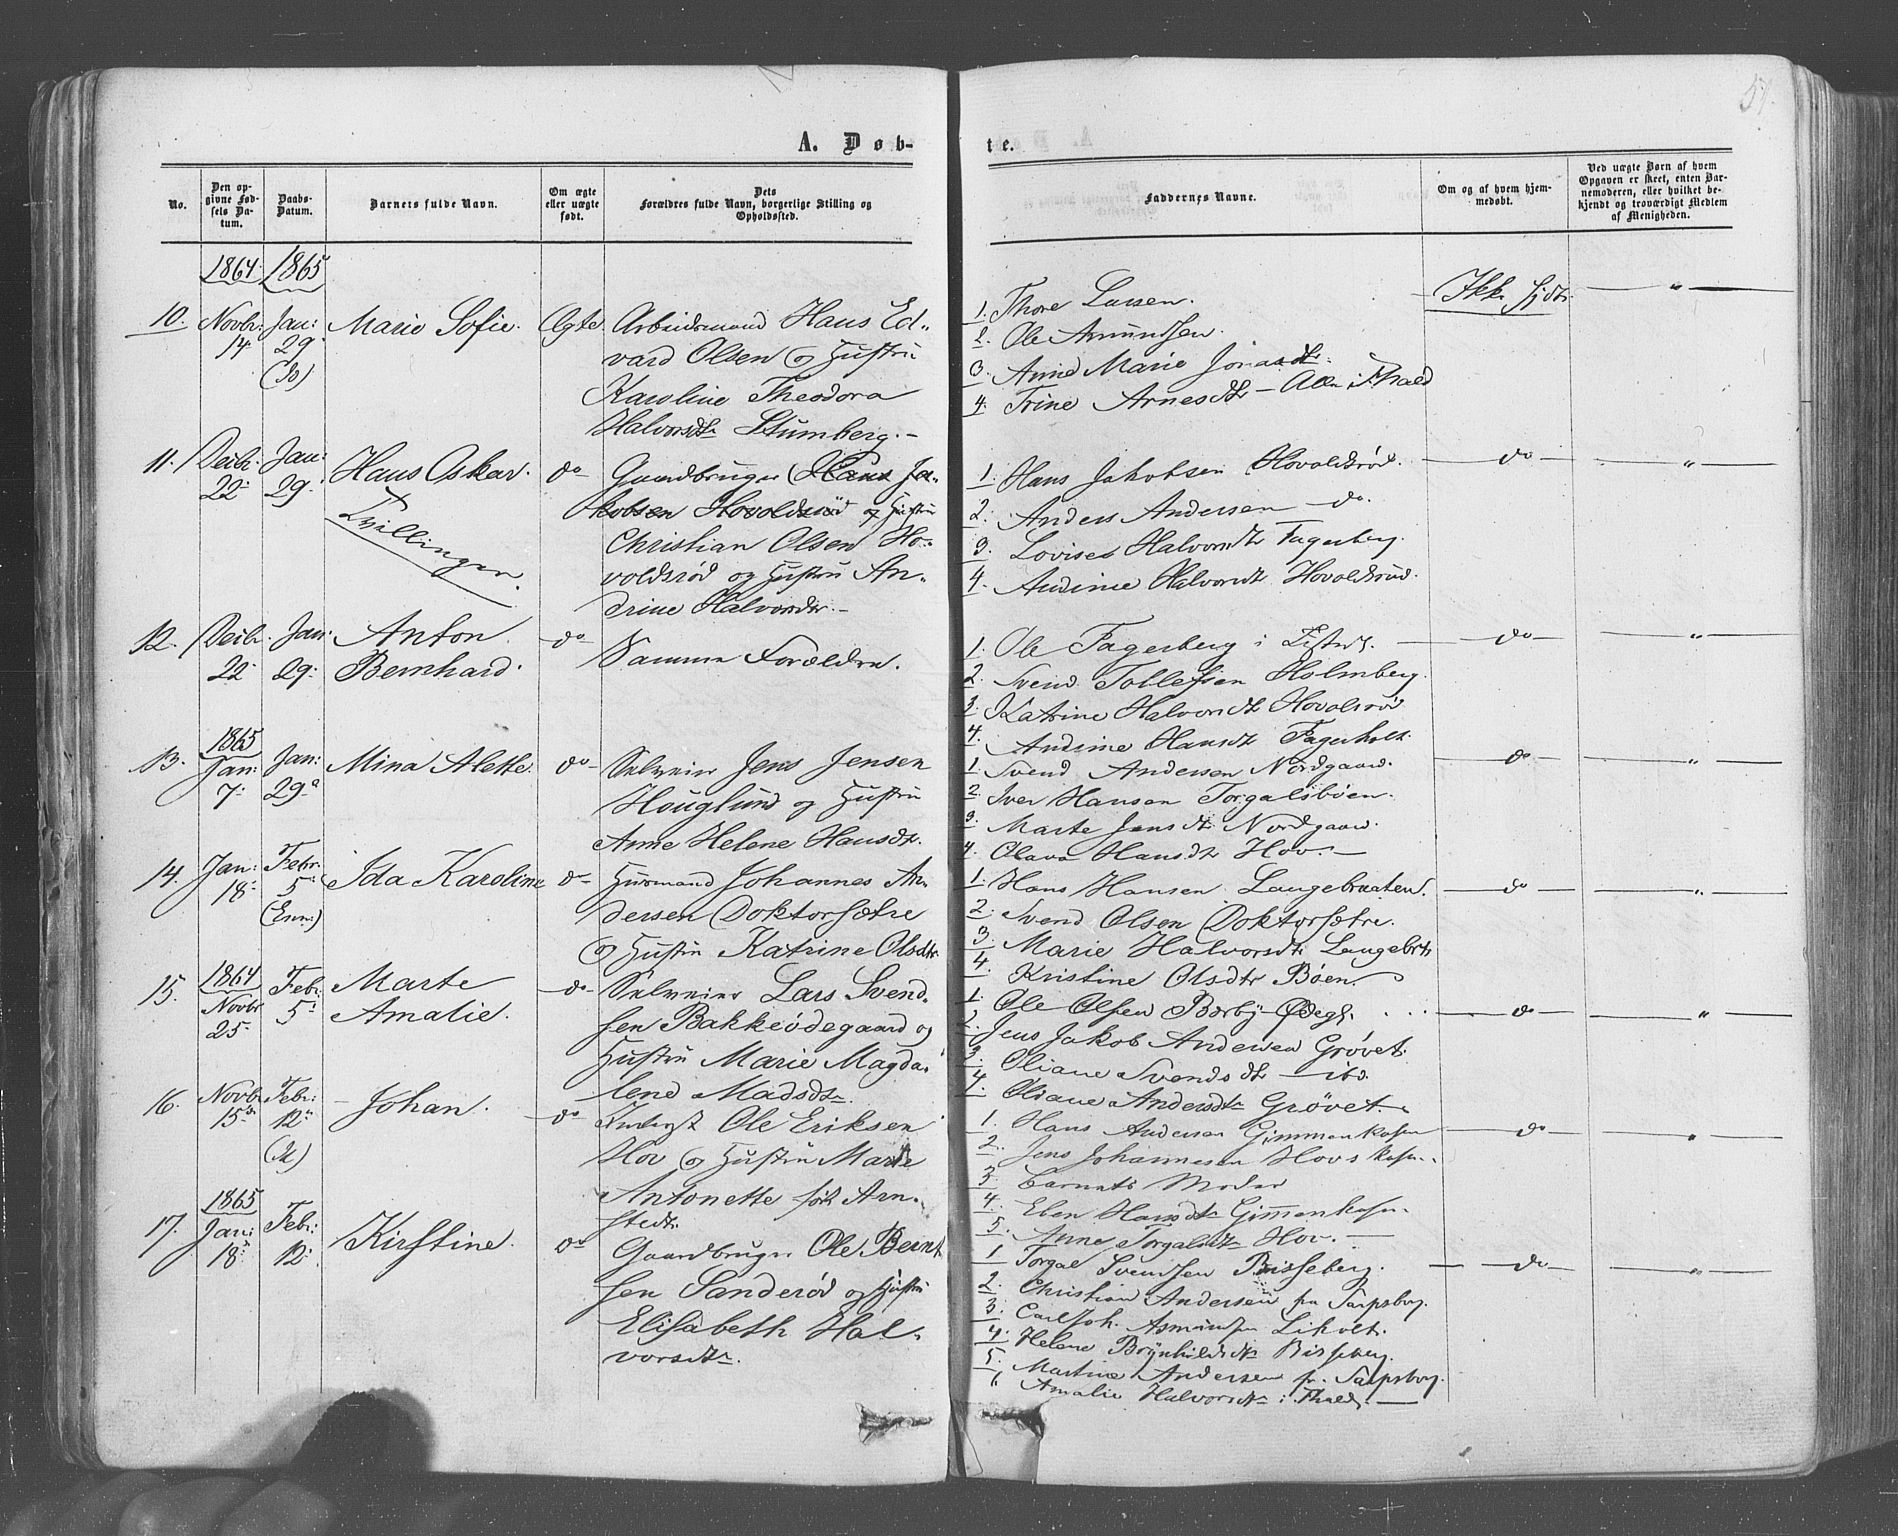 51.
A. Døb-
te.
No.
Den op-
givne Fød-
sels Da-
tum.
Daabs-
Datum.
Barnets fulde Navn.
Om ægte
eller uægte
født.
Dets
Forældres fulde Navn, borgerlige Stilling og
Opholdssted.
Faddernes Navne.
Om og af hvem hjem-
medøbt.
Ved uægte Børn af hvem
Opgaven er skeet, enten Bar-
nemoderen, eller hvilket be-
kjendt og troværdigt Medlem
af Menigheden.
1864 1865
10. Novbr: Jan: Marie Sofie. Ægte Arbeidsmand Hans Ed-
14 29 vard Olsen og Hustru
Karoline Theodora
Halvorsdtr Stumberg.-
1. Thore Larsen. Ikke hjdt. "
2. Ole Amundsen.
3. Anne Marie Jonasdtr.
4. Trine Arnesdtr - Alle i Fhald
11. Decbr. Jan: Hans Oskar. do Gaardbruger Hans Ja-
22 29. Tvillinger. kobsen Hovoldsrød og Hustru
Christian Olsen Ho-
voldsrød og Hustru An-
drine Halvorsdtr.-
1. Hans Jakobsen Hovoldsrød. do "
2. Anders Andersen - do.
3. Lovise Halvorsdtr Fagerberg.
4. Andine Halvorsdtr Hovoldsrød.
12. Decbr. Jan: Anton do Samme Forældre.
22 29. Bernhard.
1. Ole Fagerberg i - do "
2. Svend Tollefsen Holmberg.
3. Katrine Halvorsdtr Hovolsrød
4. Andine Hansdtr Fagerholt.
1865
13. Jan: Jan: Mina Alette. do Selveier Jens Jensen
7. 29 Houglund og Hustru
Anne Helene Hansdtr.
1. Svend Andersen Nordgaard. do "
2. Iver Hansen Torgalsbøen.
3. Marte Jensdtr Nordgaard.
4. Olava Hansdtr Hov.-
14. Jan: Febr: Ida Karoline do Husmand Johannes An-
18. 5. dersen Doktorsætre
og Hustru Katrine Olsdtr
1. Hans Hansen Langebraaten. do "
2. Svend Olsen Doktorsætre.
3. Marie Halvorsdtr Langebrt.
4. Kristine Olsdtr Bøen.
1864
15. Novbr Febr: Marte do Selveier Lars Svend-
25. 5. Amalie. sen Bakkeødegaard og
Hustru Marie Magda-
lene Madsdtr.
1. Ole Olsen Børby Ødeg. do "
2. Jens Jakob Andersen Grøvet.
3. Oliane Svendsdtr - ibd.
4. Oliane Andersdtr Grøvet.
16. Novbr Febr: Johan. do Inderst Ole Eriksen
15. 12. Hov og Hustru Marie
Antonette født Arn-
stedt.
1. Hans Andersen Gimmenkasen do "
2. Jens Johannesen Hovskasen.
3. Barnets Moder
4. Eben Hansdtr Gimmenkasen.
5. Anne Torgalsdtr Hov.-
1865
17. Jan: Febr: Kirstine. do Gaardbruger Ole Bernt
18. 12. sen Sanderød og Hustru
Elisabeth Hal-
vorsdtr.
1. Torgal Svendsen Bisseberg. do "
2. Christian Andersen fra Sarpsborg.
3. Carl Joh. Asmundsen Likolt.
4. Helene Brynhildsdtr Bisseberg.
5. Martine Andersen fr. Sarpsborg.
" Amalie Halvorsdtr i Fhald.-